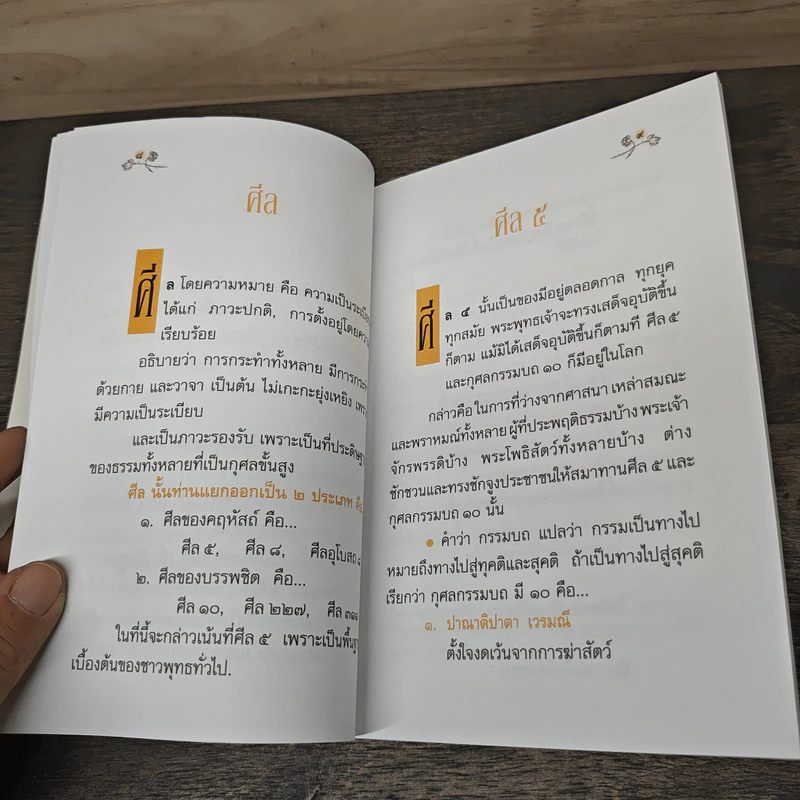 ๘
ศีล
ศีล โดยความหมาย คือ ความเป็นระเบียบ
ได้แก่ ภาวะปกติ, การตั้งอยู่โดยความ
เรียบร้อย
อธิบายว่า การกระทำทั้งหลาย มีการกระทำ
ด้วยกาย และวาจา เป็นต้น ไม่เกะกะยุ่งเหยิง เพราะ
มีความเป็นระเบียบ
และเป็นภาวะรองรับ เพราะเป็นที่ประดิษฐาน
ของธรรมทั้งหลายที่เป็นกุศลขั้นสูง
ศีล นั้นท่านแยกออกเป็น ๒ ประเภท คือ
๑. ศีลของคฤหัสถ์ คือ...
ศีล ๕, ศีล ๘, ศีลอุโบสถ
๒. ศีลของบรรพชิต คือ...
ศีล ๑๐, ศีล ๒๒๗, ศีล ๓๑๑
ในที่นี้จะกล่าวเน้นที่ศีล ๕ เพราะเป็นพื้นฐาน
เบื้องต้นของชาวพุทธทั่วไป.
๙
ศีล ๕
ศีล ๕ นั้นเป็นของมีอยู่ตลอดกาล ทุกยุค
ทุกสมัย พระพุทธเจ้าจะทรงเสด็จอุบัติขึ้น
ก็ตาม แม้มิได้เสด็จอุบัติขึ้นก็ตามที ศีล ๕
และกุศลกรรมบถ ๑๐ ก็มีอยู่ในโลก
กล่าวคือ ในการที่ว่างจากศาสนา เหล่าสมณะ
และพราหมณ์ทั้งหลาย ผู้ที่ประพฤติธรรมบ้าง พระเจ้า
จักรพรรดิบ้าง พระโพธิสัตว์ทั้งหลายบ้าง ต่าง
ชักชวนและทรงชักจูงประชาชนให้สมาทานศีล ๕ และ
กุศลกรรมบถ ๑๐ นั้น
• คำว่า กรรมบถ แปลว่า กรรมเป็นทางไป
หมายถึงทางไปสู่ทุคติและสุคติ ถ้าเป็นทางไปสู่สุคติ
เรียกว่า กุศลกรรมบถ มี ๑๐ คือ...
๑. ปาณาติปาตา เวรมณี
ตั้งใจงดเว้นจากการฆ่าสัตว์